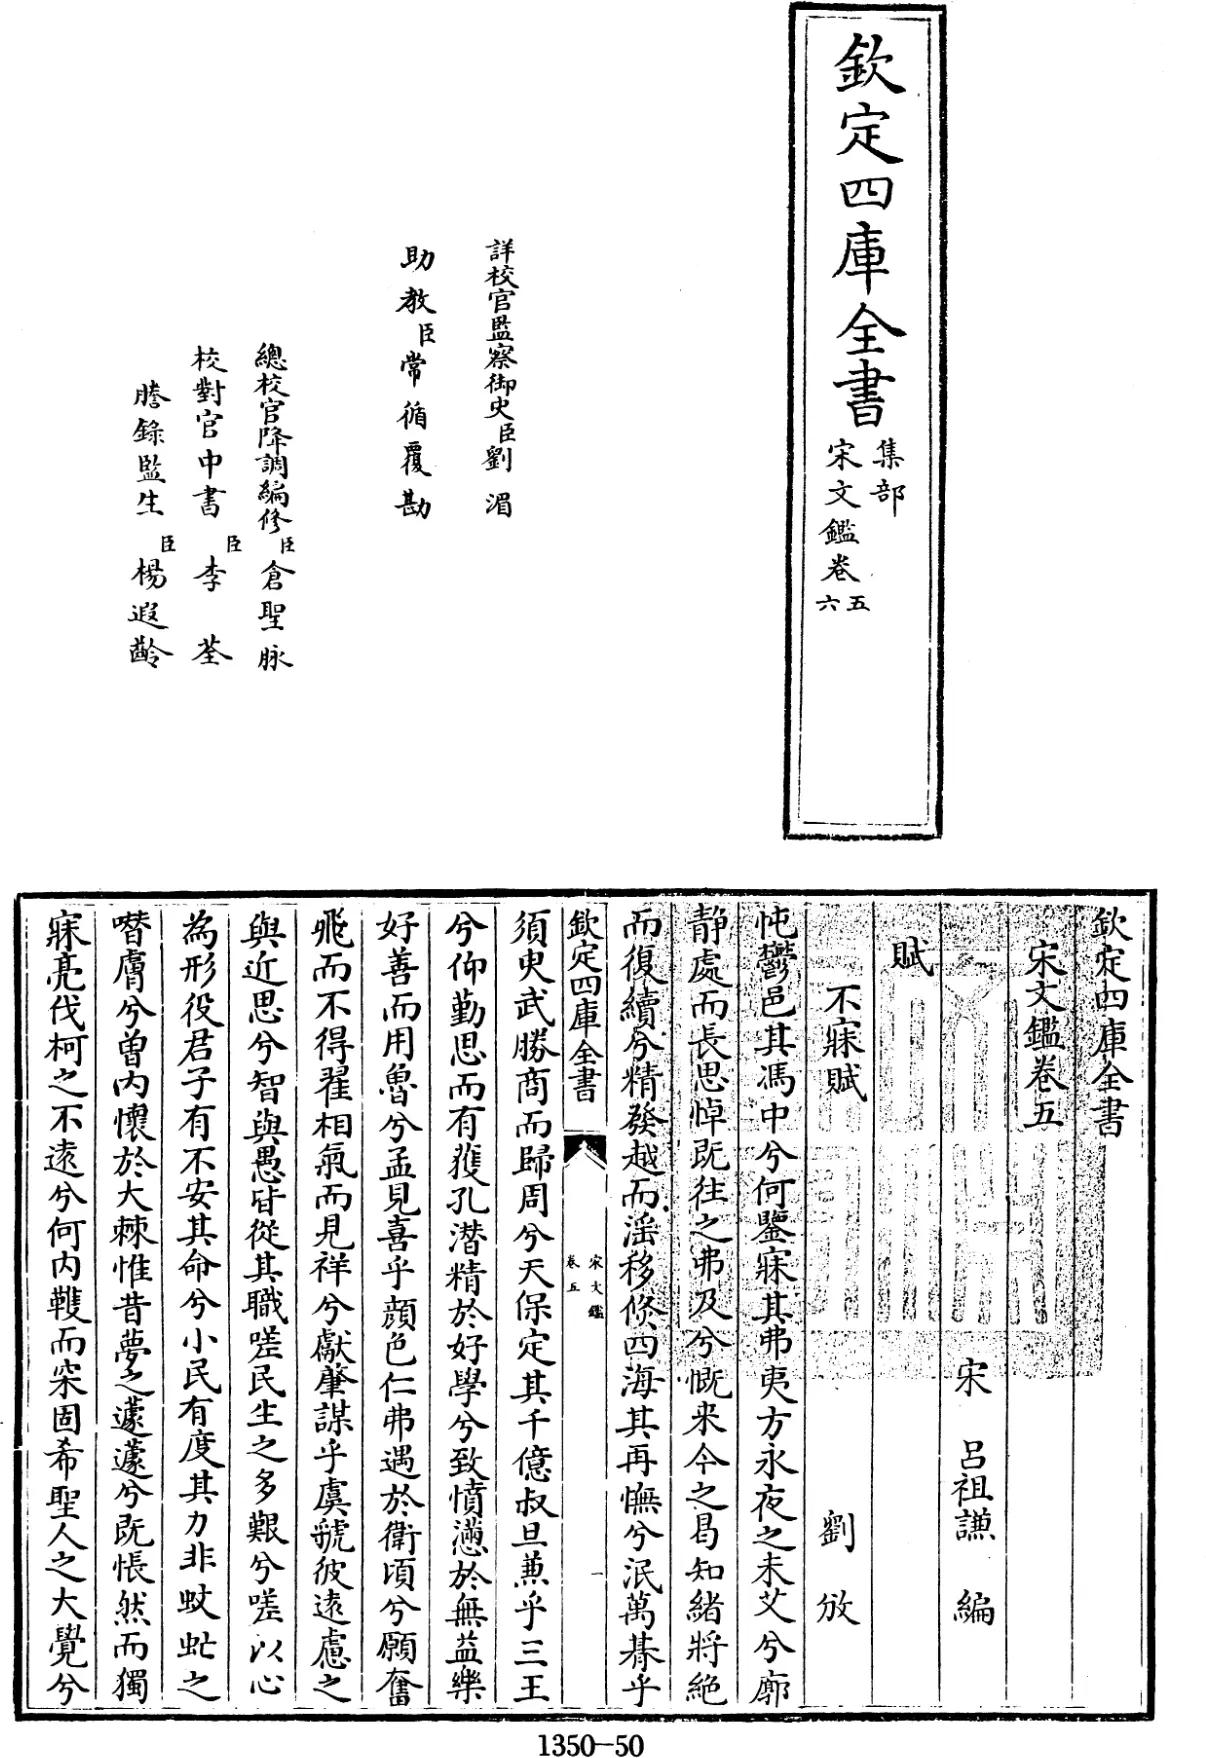 欽定四庫全書
集部
宋文鑑卷五六
詳校官監察御史臣劉湄
助教臣常循覆勘
總校官降調編修臣倉聖脉
校對官中書臣李荃
謄錄監生臣楊遐齡
欽定四庫全書
宋文鑑卷五
宋 呂祖謙 編
賦
不寐賦 劉攽
忳鬱邑其馮中兮何鑒寐其弗夷方永夜之未艾兮廓
静處而長思悼既往之弗及兮慨来今之曷知緒將絶
而復續兮精發越而滛移倏四海其再憮兮泯萬朞乎
欽定四庫全書
宋文鑑
卷五
一
須臾武勝商而歸周兮天保定其千億叔旦兼乎三王
兮仰勤思而有獲孔潛精於好學兮致憤懣於無益樂
好善而用魯兮孟見喜乎顔色仁弗遇於衛頃兮願奮
飛而不得翟相氣而見祥兮獻肇謀乎虞虢彼遠慮之
與近思兮智與愚皆從其職嗟民生之多艱兮嗟以心
為形役君子有不安其命兮小民有度其力非蚊虻之
噆膚兮曾内懷於大棘惟昔夢之蘧蘧兮既悵然而獨
寐亮伐柯之不遠兮何内韄而深固希聖人之大覺兮
1350—50